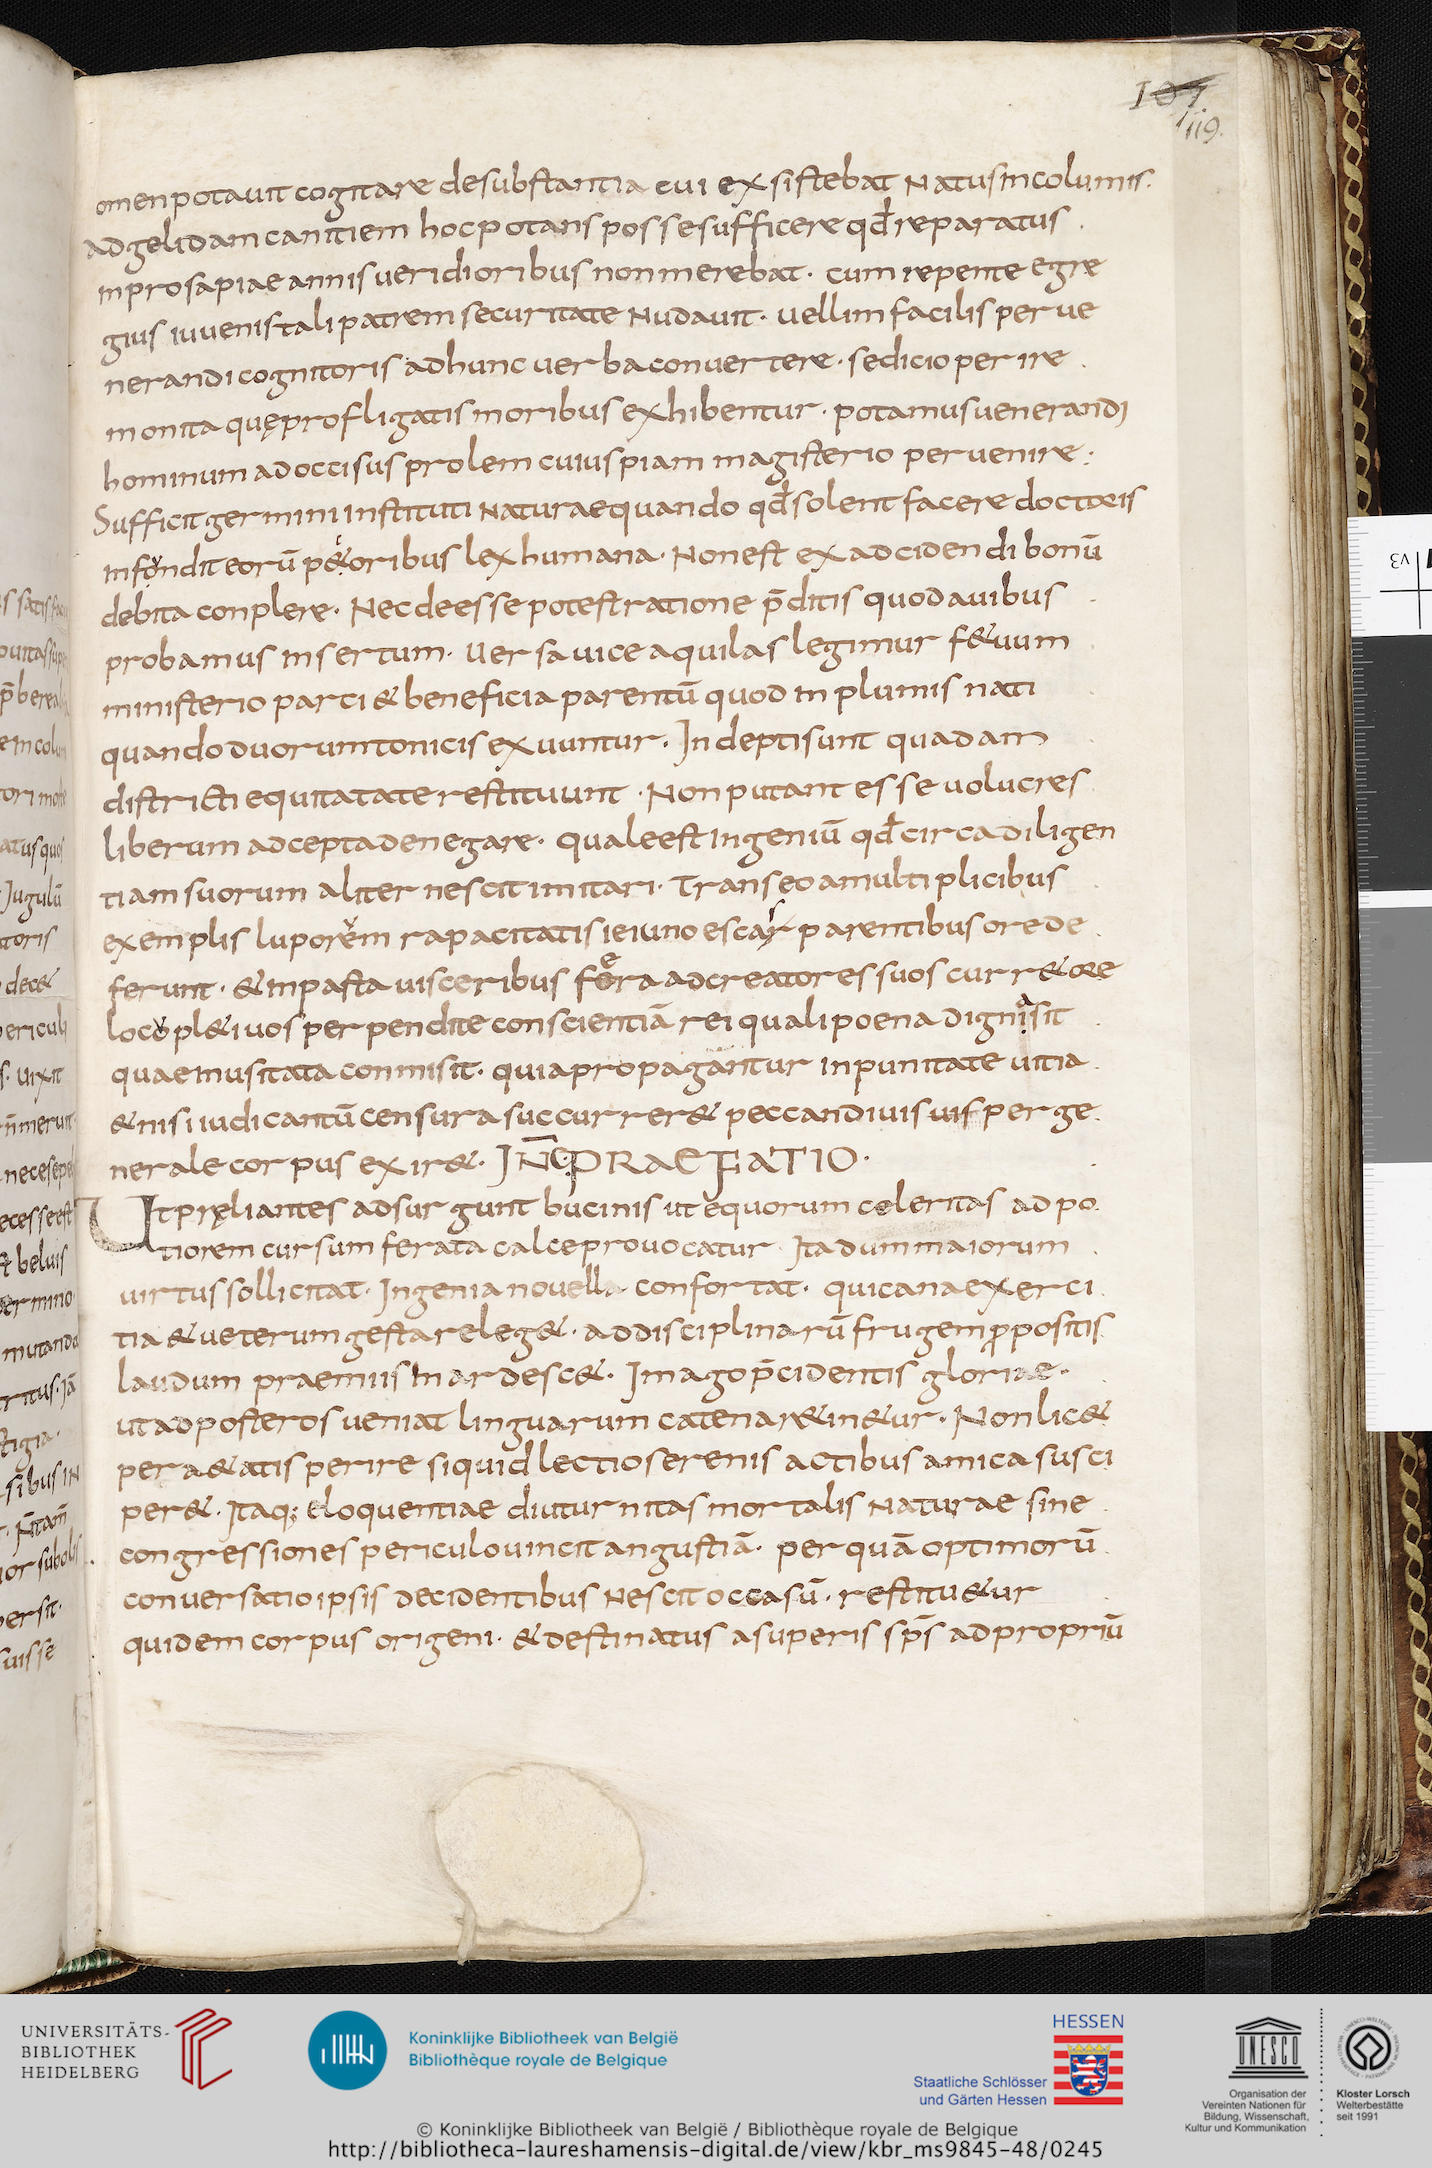 107.
119.
omen potauit cogitare de substantia cui exsistebat natus incolumis.
ad gelidam canitiem hoc potans posse sufficere qđ reparatus
in prosapiae annis ueridioribus non merebat. cum repente egre
gius iuuenis tali patrem securitate nudauit. uellim facilis per ue
nerandi cognitoris adhunc uerba conuertere. sed icio perire
monita quę profligatis moribus exhibentur. potamus uenerandi
hominum ad occisus prolem cuiuspiam magisterio peruenire:
Sufficit germini instituti naturae quando qđ solent facere doctoris
infondit eorū p&oribus lex humana. Non est ex adcidendi bonū
debita conplere. Nec deesse potest ratione p̄ditis quod auibus
probamus insertum. Uersa uice aquilas legimur f&uum
ministerio parci & beneficia parentū quod in plumis nati
quando duorum tonicis exuuntur. Indepti sunt quadam
districti equitatate restituunt. Non putant esse uolucres
liberum adcepta denegare. quale est ingeniū qđ circa diligen
tiam suorum aliter nescit imitari. Transeo a multiplicibus
exemplis luporem rapacitatis ieiuno escas parentibus ore de
ferunt. & inpasta uisceribus foera ad creatores suos curr& ore
locupl&i uos perpendite conscientiā rei quali poena digna sit
quae inusitata conmisit. quia propagantur inpunitate uitia
& nisi iudicantū censura succurrer& peccandi uis uis per ge
nerale corpus exir&. INC̄ PRAEFATIO.
Ut pręliantes adsurgunt bucinis ut equorum celeritas ad po
tiorem cursum ferata calce prouocatur Ita dum maiorum
uirtus sollicitat. Ingenia nouella confortat. qui cana exerci
tia & ueterum gesta releg&. ad disciplinarū frugem ꝓpositis
laudum praemiis inardesc&. Imago p̄cidentis gloriae.
ut ad posteros ueniat linguarum catena r&in&ur. Non lic&
per a&atis perire siquid lectio serenis actibus amica susci
per&. Itaq; eloquentiae diuturnitas mortalis naturae sine
congressiones periculo uincit angustiā. per quā optimorū
conuersatio ipsis decidentibus nescit occasū. restitu&ur
quidem corpus origeni. & destinatus a superis sp̄s ad propriū
UNIVERSITÄTS-
BIBLIOTHEK
HEIDELBERG
Koninklijke Bibliotheek van België
Bibliothèque royale de Belgique
HESSEN
Staatliche Schlösser
und Gärten Hessen
UNESCO
Organisation der
Vereinten Nationen für
Bildung, Wissenschaft,
Kultur und Kommunikation
Kloster Lorsch
Welterbestätte
seit 1991
© Koninklijke Bibliotheek van België / Bibliothèque royale de Belgique
http://bibliotheca-laureshamensis-digital.de/view/kbr_ms9845-48/0245